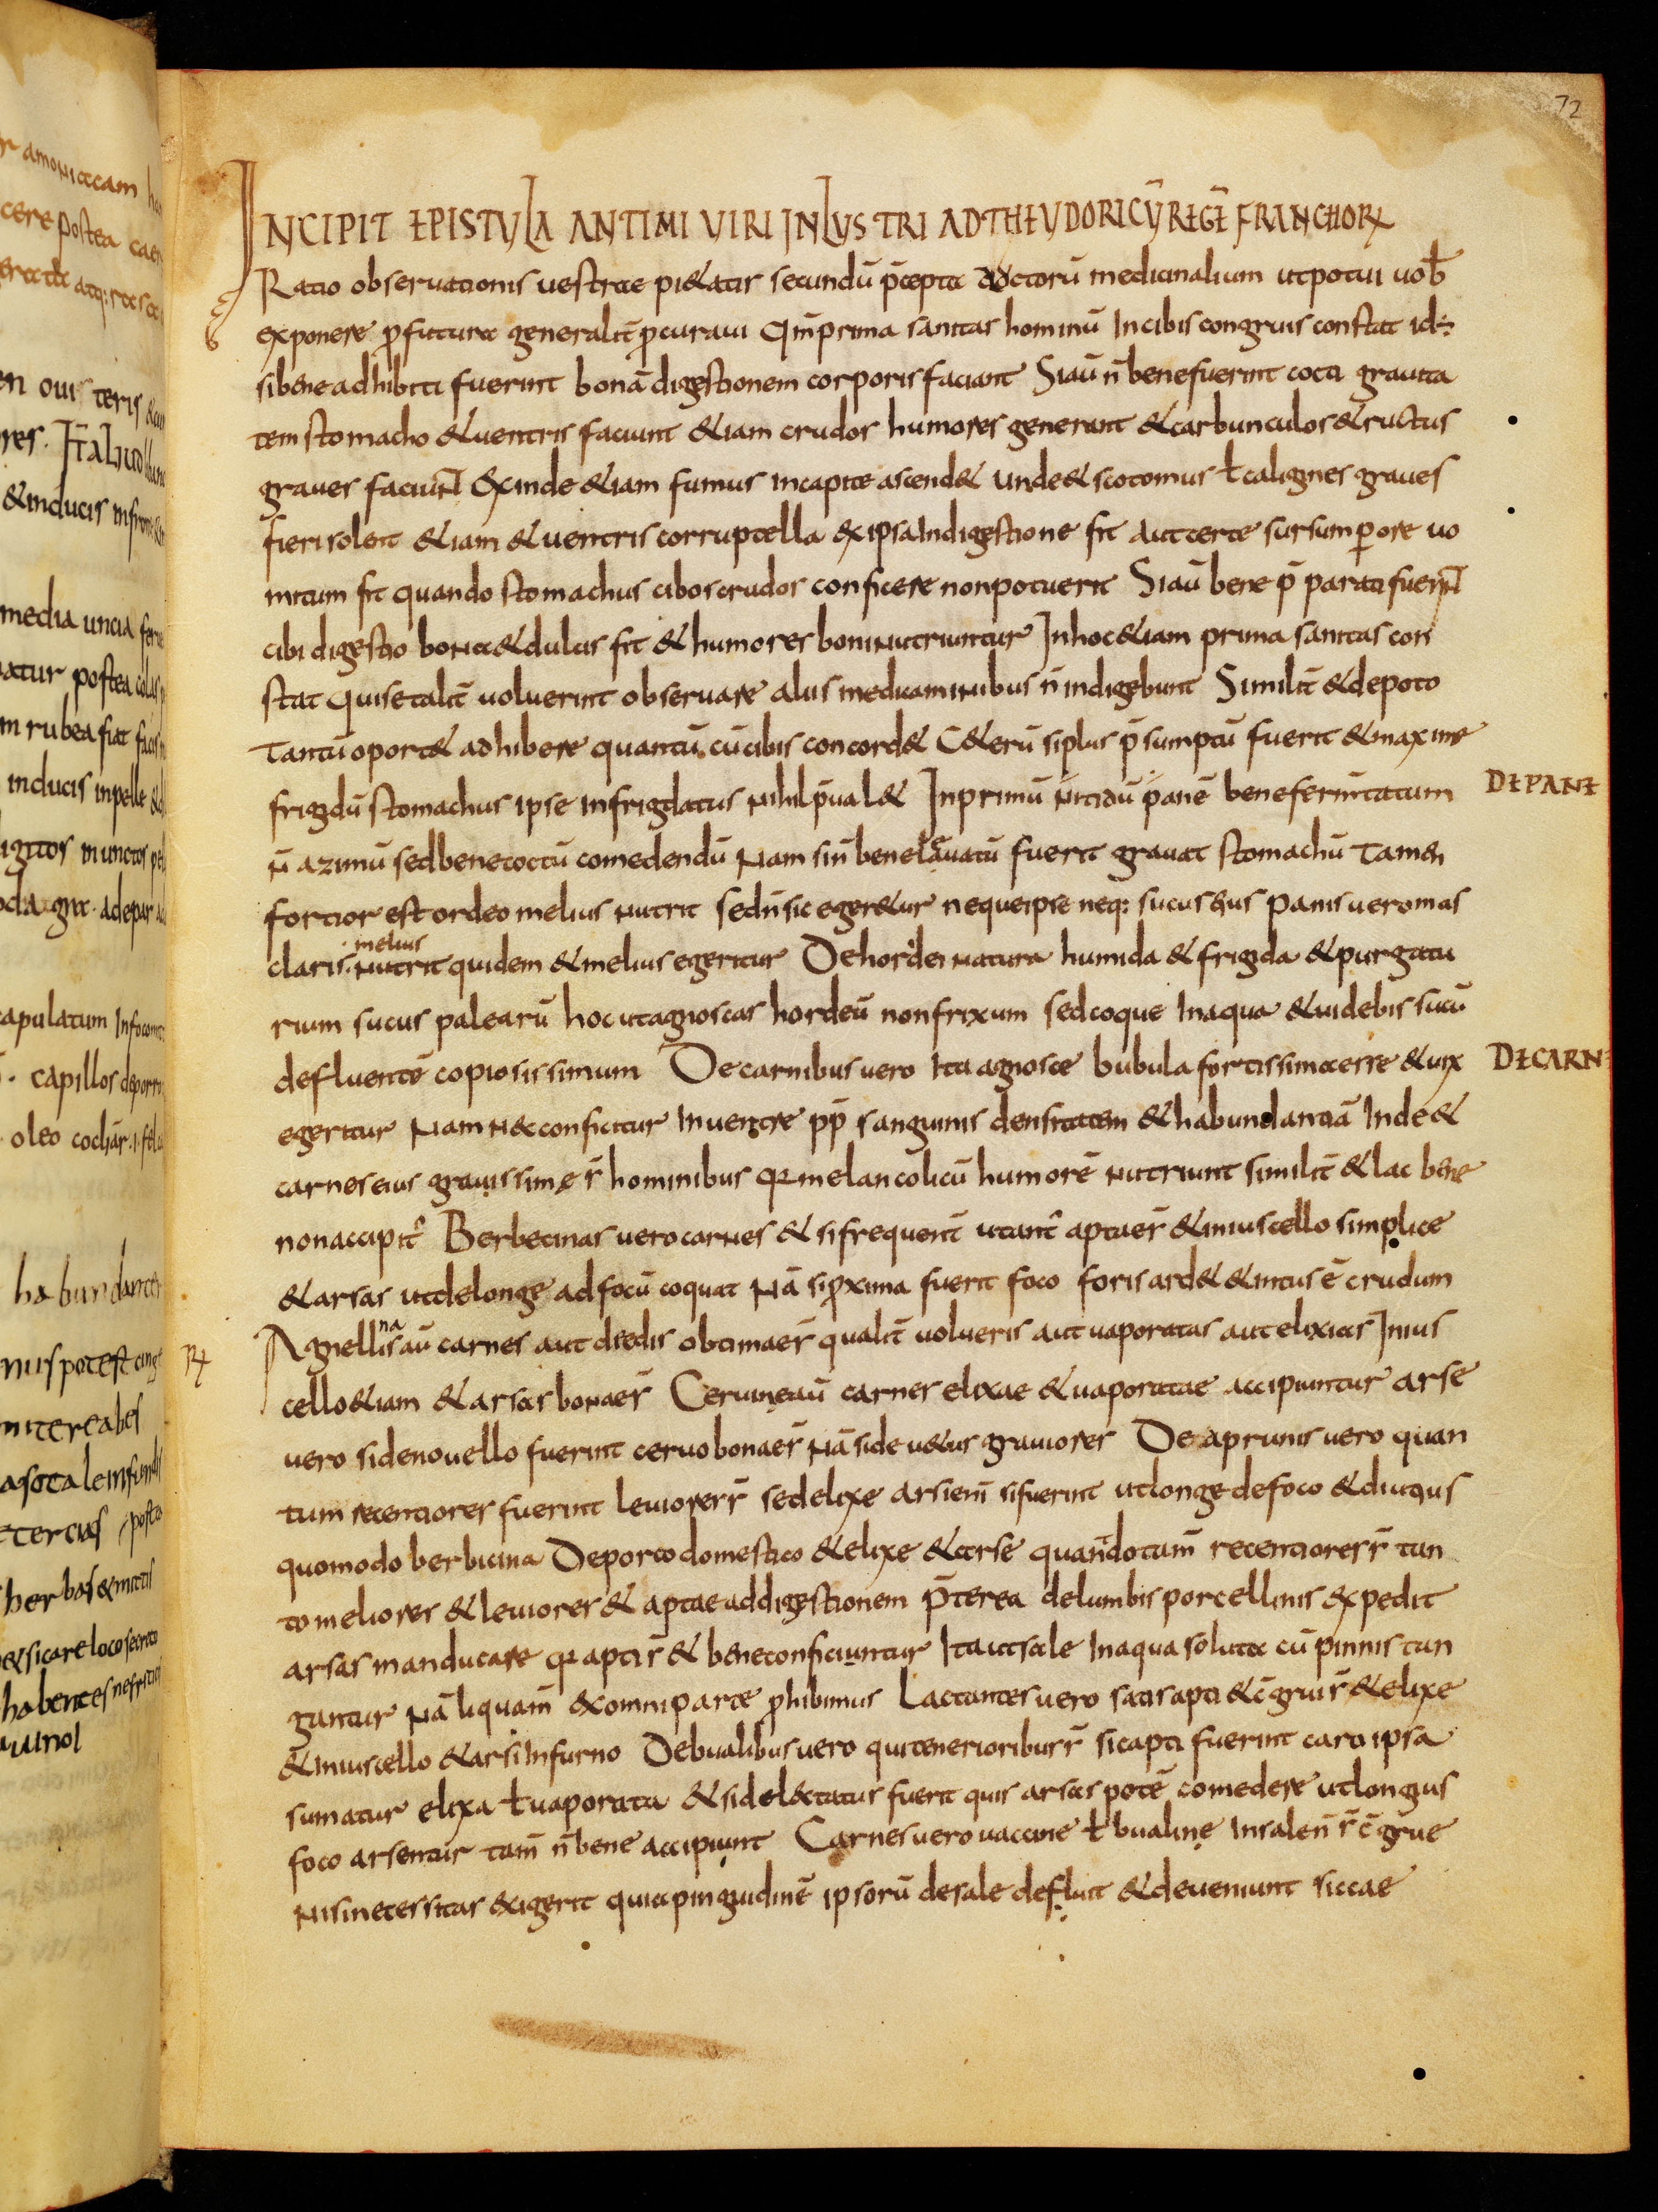 72
INCIPIT EPISTULA ANTIMI VIRI INLUSTRI AD THEUDORICŪ REGĒ FRANCHORꝜ
Ratio observationis vestrae pi&atis secundū p̄cepta doctorū medicinalium ut potui vob̄
exponere ꝓfutura generalit̄ ꝓcuravi Qm̄ prima sanitas hominū In cibis congruis constat id÷
si bene adhibiti fuerint bonā digestionem corporis faciant Si aū n̄ bene fuerint cocti gravita
tem stomacho & ventris faciunt &iam crudos humores generant & carbunculos & ructus
graves faciunt Exinde &iam fumus in capite ascend& unde & scotomus ł caligines graves
fieri solent &iam & ventris corruptella ex ipsa Indigestione fit aut certe sursum ꝑ ore vo
mitum fit quando stomachus cibos crudos conficere non potuerit Si aū bene p̄parati fuerint
cibi digestio bona & dulcis fit & humores boni nutriuntur In hoc &iam prima sanitas con
stat qui se talit̄ voluerint observare aliis medicaminibus n̄ indigebunt Similit̄ & de poto
tantū oport& adhibere quantū cū cibis concord& C&erū si plus p̄sumptū fuerit & maxime
frigidū stomachus ipse infrigdatus nihil p̄val& In primū nitidū panē bene fermtatum
DE PANE
n̄ azimū sed bene coctū comedendū Nam si n̄ bene lavatū fuerit gravat stomachū Tamen
fortior est ordeo melius nutrit sed n̄ sic eger&ur neque ipse neq: sucus eius Panis vero mas
melius
claris nutrit quidem & melius egeritur De hordei natura humida & frigida & purgatu
rium sucus palearū hoc ut agnoscas hordeū non frixum sed coque In aqua & videbis sucū
defluentē copiosissimum De carnibus vero Ita agnosce bubula fortissima esse & vix
DE CARNE
egeritur Nam n&c conficitur In ventre pp̄ sanguinis densitatem & habundantiā Inde &
carnes eius gravissime s̄ hominibus qꝛ melancolicū humorē nutriunt similit̄ & lac bene
non accipit᷑ Berbecinas vero carnes & si frequent̄ utant᷑ aptae s̄ & in iuscello simplice
& arsas ut de longe ad focū coquat Nā si ꝓxima fuerit foco foris ard& & intus ē crudum
na
Agnellis aū carnes aut aedis obtimae s̄ qualit̄ volueris aut vaporatas aut elixias In ius
Rꝝ
cello &iam & arsas bonae s̄ Cervine aū carnes elixae & vaporatae accipiuntur arse
vero si de novello fuerint cervo bonae s̄ Nā si de v&us graviores De aprunis vero quan
tum recentiores fuerint leviores s̄ sed elixe arsi em̄ si fuerint ut longe de foco & diutius
quomodo berbicina De porco domestico & elixe & arse quando tam̄ recentiores s̄ tan
to meliores & leviores & aptae ad digestionem P̄terea de lumbis porcellinis expedit
arsas manducare qꝛ apti s̄ & bene conficiuntur Ita ut sale In aqua soluta cū pinnis tan
gantur Nā liquam̄ ex omni parte ꝓhibimus Lactantes vero satis apti & c̄grui s̄ & elixe
& In iuscello & arsi In furno De bualibus vero qui tenerioribus s̄ si capti fuerint caro ipsa
sumatur elixa ł vaporata & si delectatus fuerit quis arsas potē comedere ut longius
foco arsentur tam̄ n̄ bene accipiunt Carnes vero vaccine ł bualine In salen̄ s̄ c̄grue
nisi necessitas exigerit quia pinguidinē ipsorū de sale defluit & deveniunt siccae